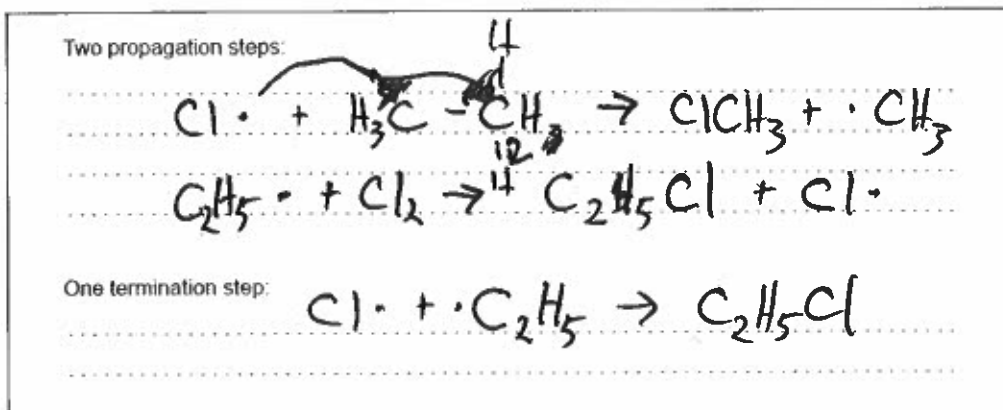 Two propagation steps:
H
Cl· + H₃C – CH₃ → ClCH₃ + ·CH₃
12
C₂H₅· + Cl₂ → H C₂H₅Cl + Cl·
One termination step:
Cl· + ·C₂H₅ → C₂H₅Cl